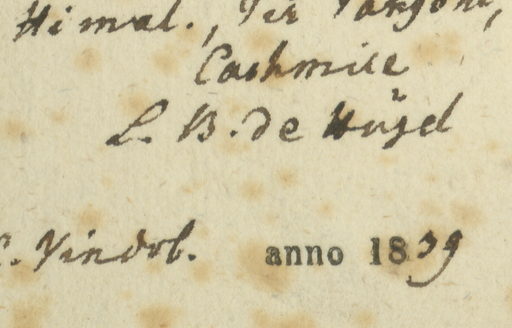 Himal., Pir Panjohl,
Cashmire
L. B. de Hügel
C. Vindob. anno 1839